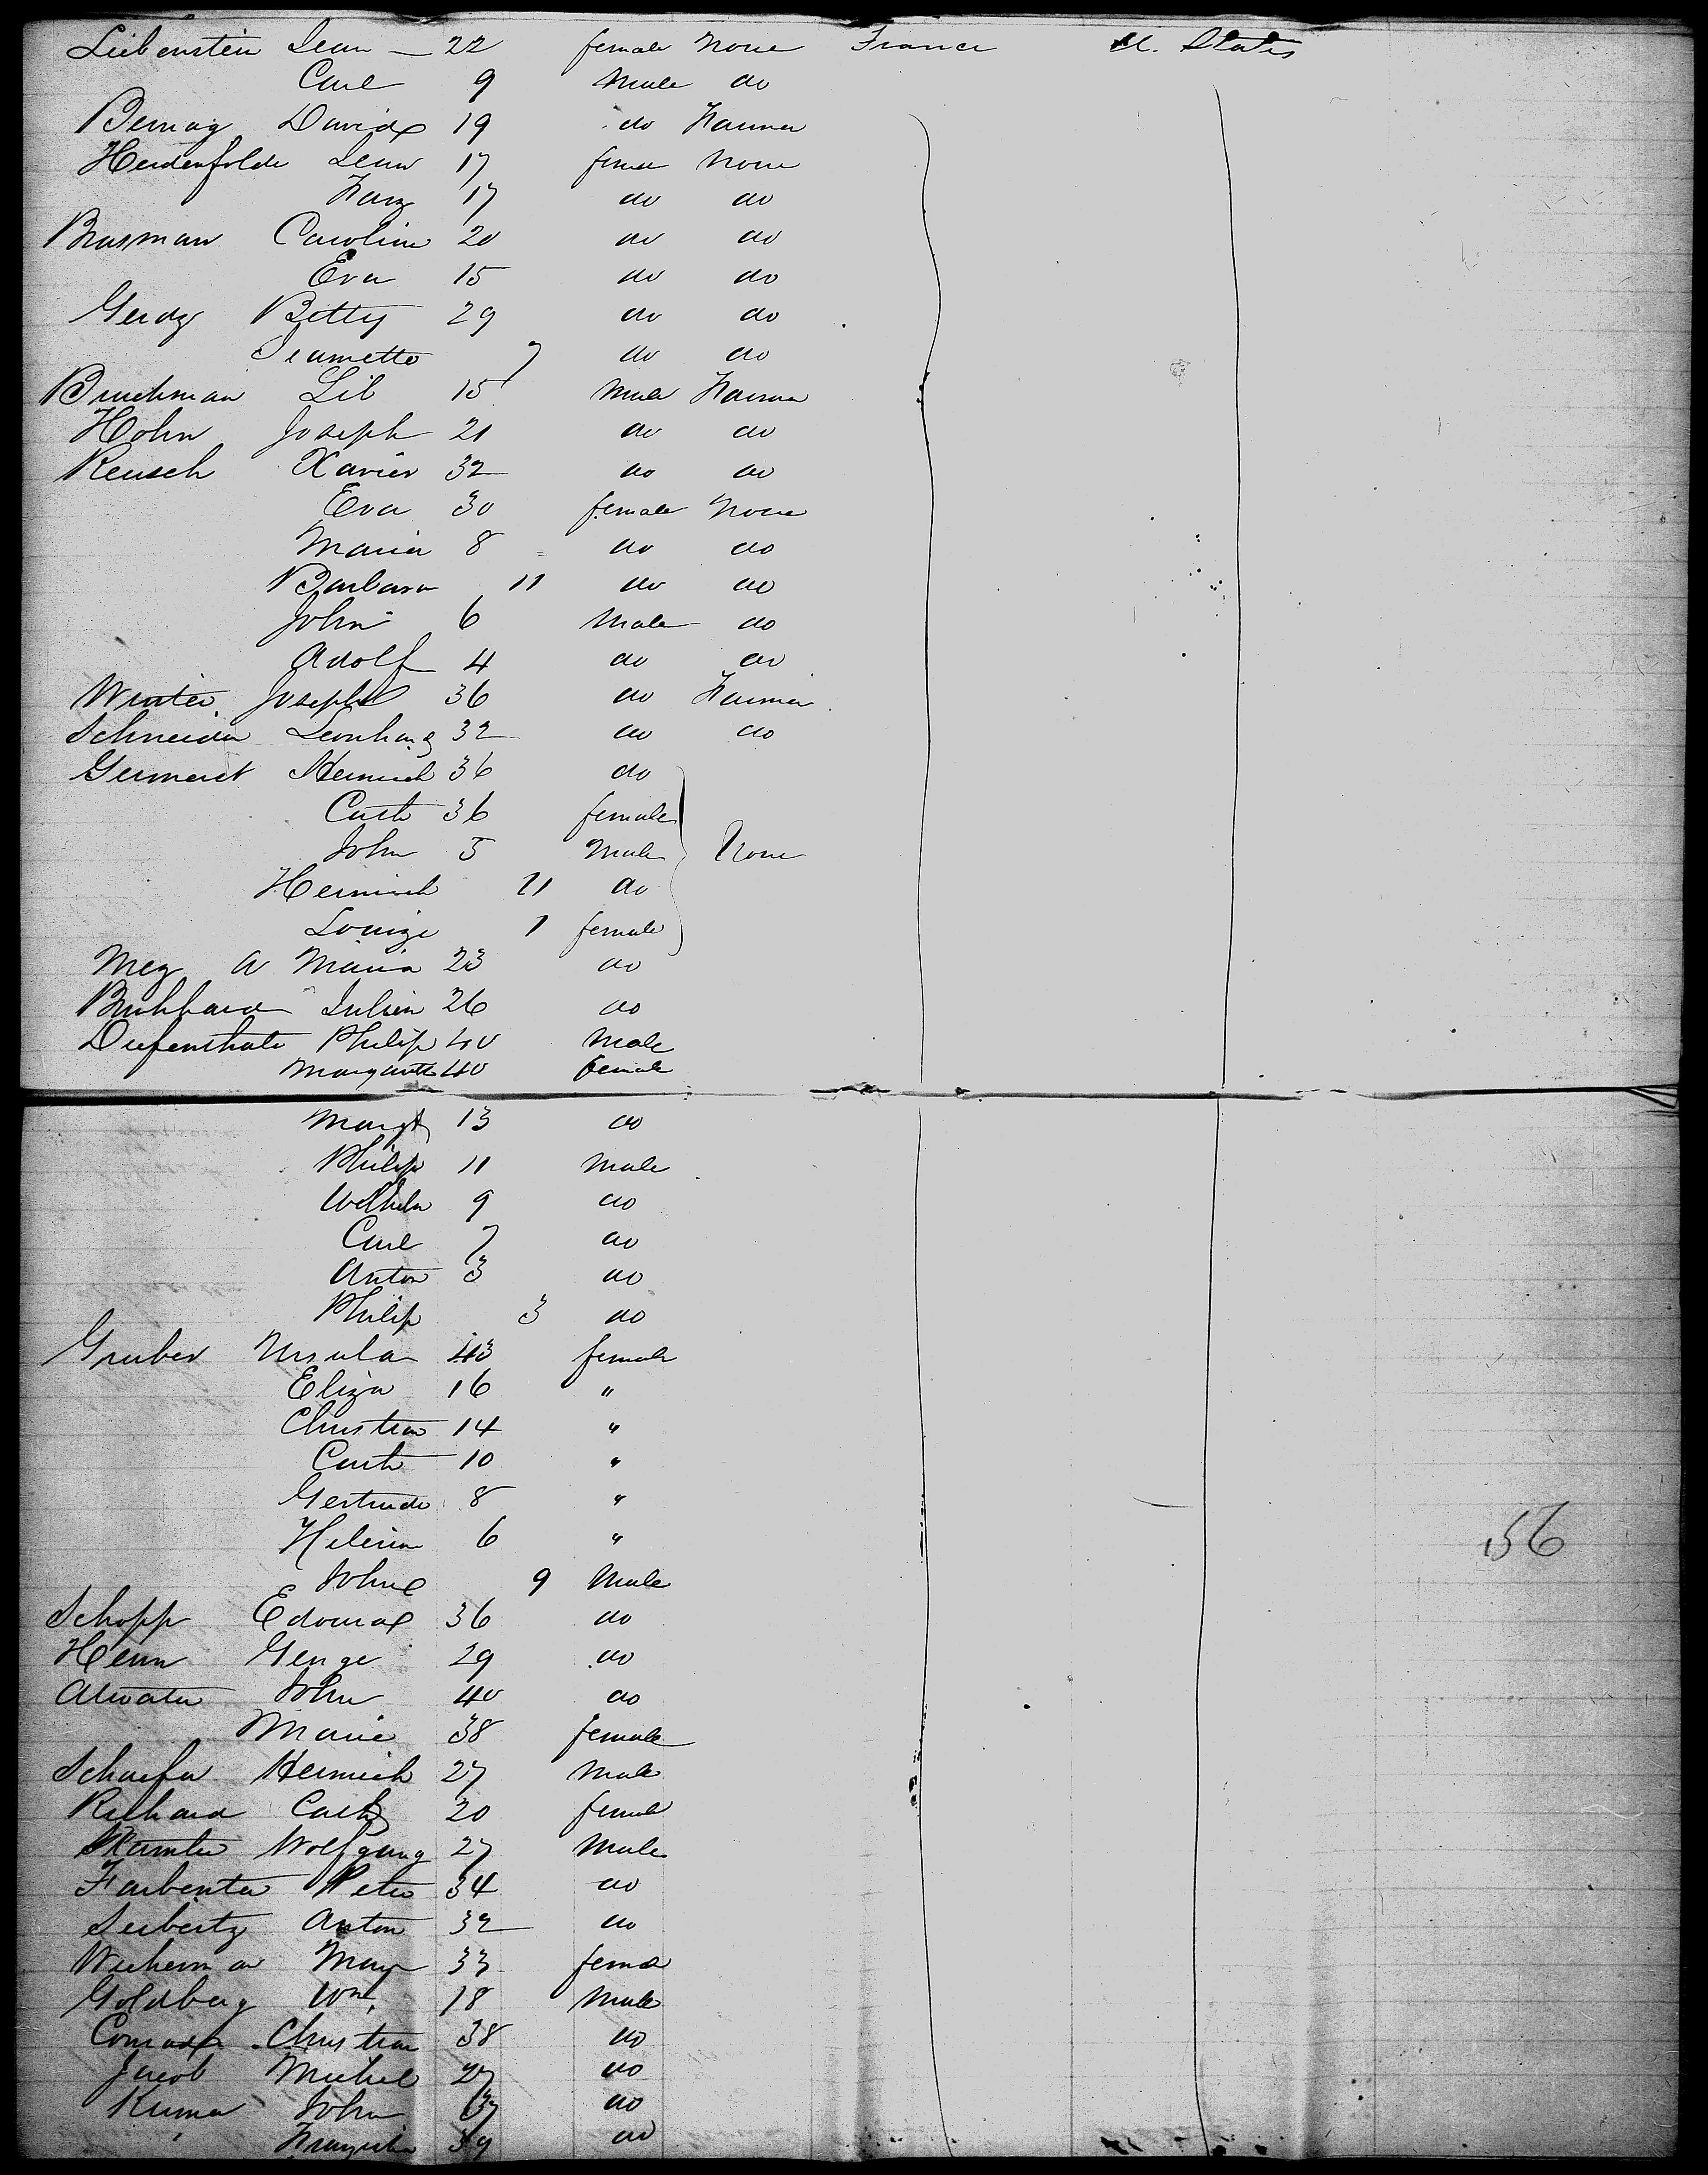 Liebenstein Lean — 22 female None France U. States
Carl 9 Male do
Bernag David 19 do Farmer
Heidenfolde Lean 17 femal None
Fanz 17 do do
Brasman Caroline 20 do do
Eva 15 do do
Gerdz Betty 29 do do
Jeanette 7 do do
Bruchman Lib 15 Male Farmer
Hohn Joseph 21 do do
Reusch Xavier 32 do do
Eva 30 female None
Maria 8 do do
Barbara 11 do do
John 6 Male do
Adolf 4 do do
Winter Joseph 36 do Farmer
Schneider Leonhard 32 do do
Heinrich 36 do
Cath 36 female
John 5 Male None
Heinrich 11 do
Louize 1 female
Mez A Maria 23 do
Julien 26 do
Philip 40 Male
Margareth 40 female
Margt 13 do
Philip 11 Male
Wilhelm 9 do
Carl 7 do
Anton 3 do
Philip 3 do
Gruber Ursula 43 female
Eliza 16 "
Christian 14 "
Cath 10 "
Gertrude 8 "
Helena 6 "
John 9 Male
56
Schopp Edouard 36 do
Henn George 29 do
Atwater John 40 do
Marie 38 female
Schaefer Heinrich 27 Male
Richard Cath 20 female
Wolfgang 27 Male
Farbenter Peter 34 do
Seibertz Anton 32 do
Mary 33 femal
Goldberg Wm. 18 Male
Conrad Christian 38 do
Jacob Michel 27 do
John 37 do
39 do